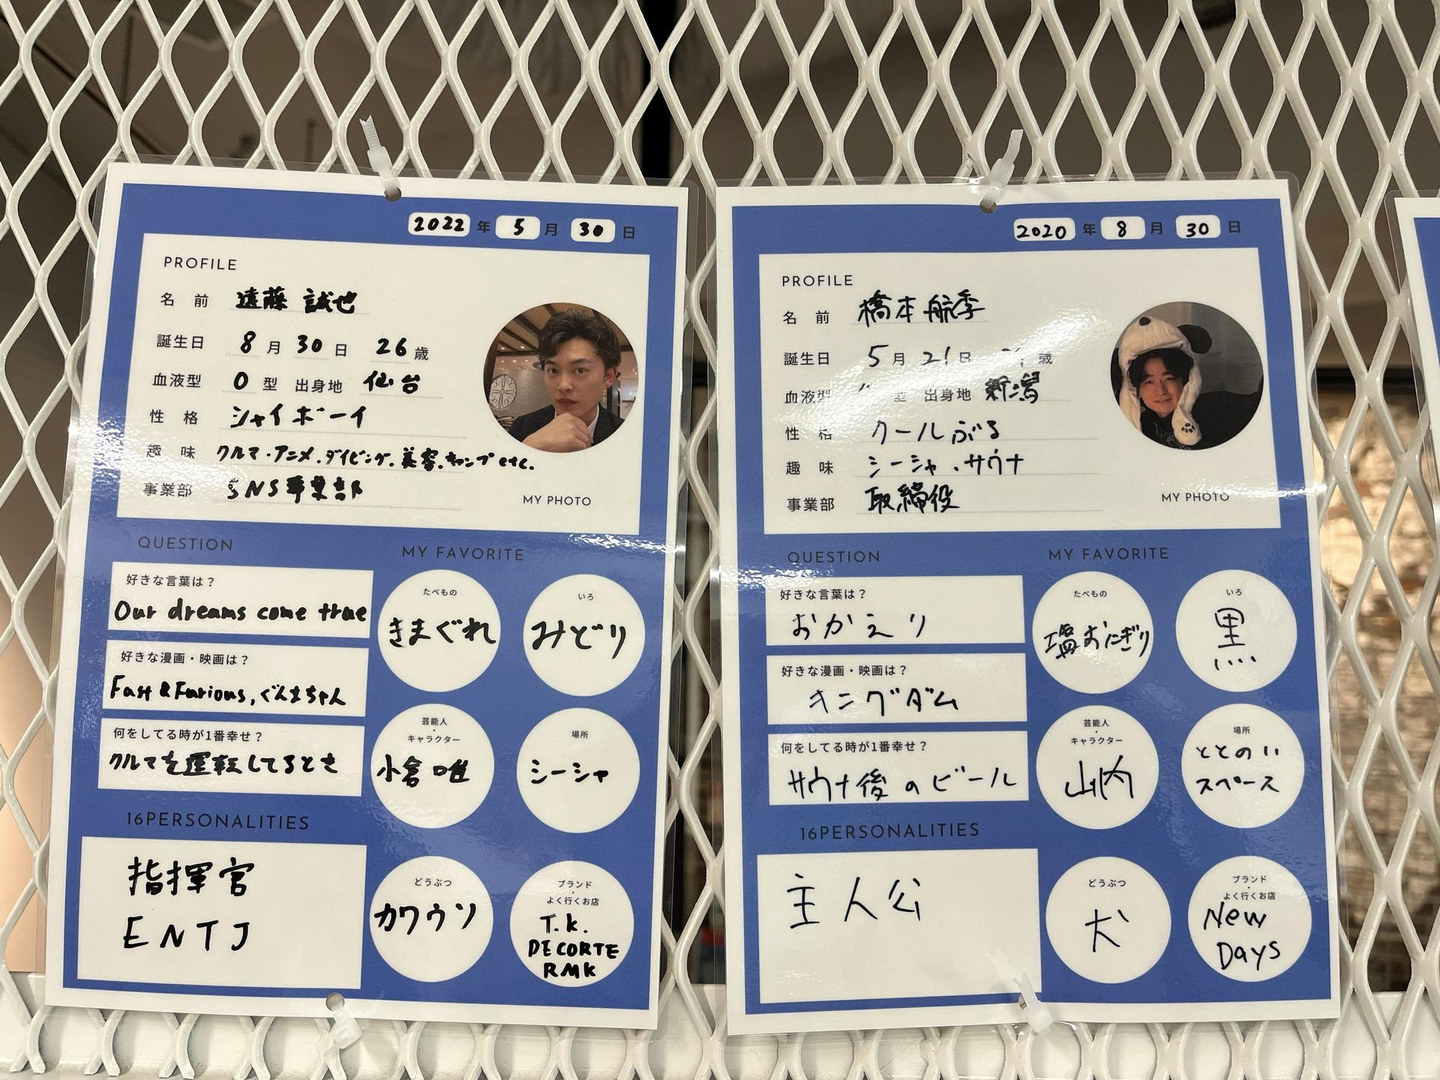 2022 年 5 月 30 日
PROFILE
名 前 遠藤 誠也
誕生日 8 月 30 日 26 歳
血液型 O 型 出身地 仙台
性 格 シャイボーイ
趣 味 クルマ・アニメ・ダイビング・美容・キャンプ etc.
事業部 SNS事業部
MY PHOTO
QUESTION
好きな言葉は？
Our dreams come true
好きな漫画・映画は？
Fast & Furious, ぐんまちゃん
何をしてる時が1番幸せ？
クルマを運転してるとき
16PERSONALITIES
指揮官
ENTJ
MY FAVORITE
たべもの
きまぐれ
いろ
みどり
芸能人
・
キャラクター
小倉 唯
場所
シーシャ
どうぶつ
カワウソ
ブランド
・
よく行くお店
T.K.
DECORTE
RMK
2020 年 8 月 30 日
PROFILE
名 前 橋本 航季
誕生日 5 月 21 日 歳
血液型 型 出身地 新潟
性 格 クールぶる
趣 味 シーシャ・サウナ
事業部 取締役
MY PHOTO
QUESTION
好きな言葉は？
おかえり
好きな漫画・映画は？
キングダム
何をしてる時が1番幸せ？
サウナ後のビール
16PERSONALITIES
主人公
MY FAVORITE
たべもの
塩おにぎり
いろ
黒
芸能人
・
キャラクター
山内
場所
ととのい
スペース
どうぶつ
犬
ブランド
・
よく行くお店
New
Days